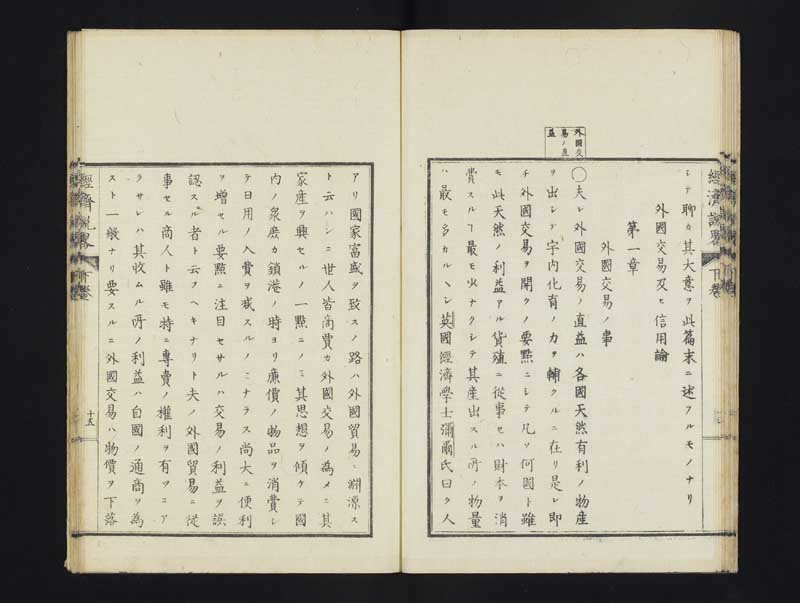 シテ聊カ其大意ヲ此篇末ニ述フルモノナリ
外國交易及ヒ信用論
第一章
外國交易ノ事
外國交
易ノ直
益
〇夫レ外國交易ノ直益ハ各國天然有利ノ物産
ヲ出シテ宇内化育ノ力ヲ輔クルニ在リ是レ即
チ外國交易ヲ開クノ要點ニシテ凡ソ何國ト雖
モ此天然ノ利益アル貨殖ニ從事セハ財本ヲ消
費スルヿ最モ少ナクシテ其産出スル所ノ物量
ハ最モ多カルヘシ英國經濟學士彌爾氏曰ク人
經濟説畧 下巻
アリ國家富盛ヲ致スノ路ハ外國貿易ニ淵源ス
ト云ハンニ世人皆商賈カ外國交易ノ為メニ其
家産ヲ興セルノ一點ニノミ其思想ヲ傾ケテ國
内ノ衆庶カ鎖港ノ時ヨリ廉價ノ物品ヲ消費シ
テ日用ノ入費ヲ減スルノミナラス尚大ニ便利
ヲ増セル要點ニ注目セサルハ交易ノ利益ヲ誤
認スル者ト云フヘキナリト夫ノ外國貿易ニ從
事セル商人ト雖モ特ニ專賣ノ權利ヲ有ツニア
ラサレハ其收ムル所ノ利益ハ自國ノ通商ヲ為
スト一般ナリ要スルニ外國交易ハ物價ヲ下落
經濟説畧 下巻
十五